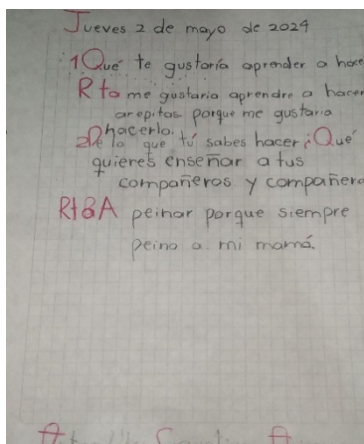 Jueves 2 de mayo de 2024
1 Que te gustaría aprender a hace
Rta me gustaria aprendre a hacer
arepitas porque me gustaria
hacerlo.
2 De lo que tú sabes hacer ¿Qué
quieres enseñar a tus
compañeros y compañera
RtaA peinar porque siempre
peino a mi mamá.